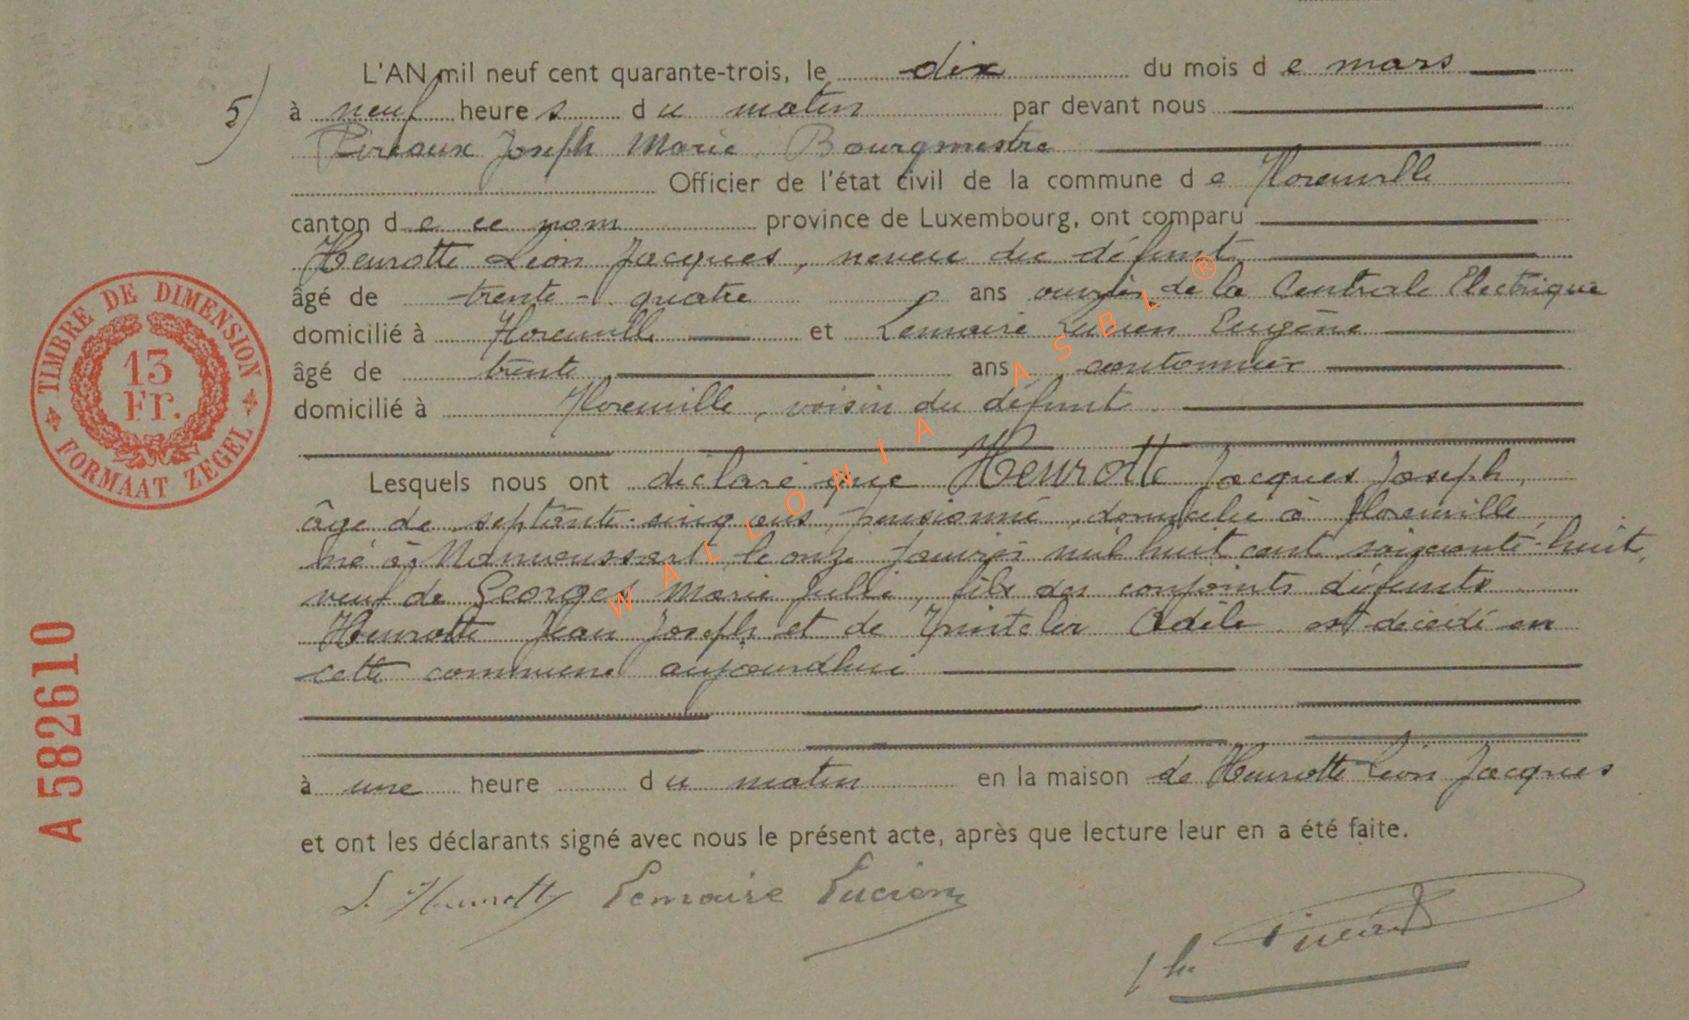 L'AN mil neuf cent quarante-trois, le dix du mois de mars
5) à neuf heures du matin par devant nous
Pireaux Joseph Marie, Bourgmestre
Officier de l'état civil de la commune de Florenville
canton de ce nom province de Luxembourg, ont comparu
Henrotte Léon Jacques, neveu du défunt
âgé de trente-quatre ans ouvrier de la Centrale Electrique
domicilié à Florenville et Lemaire Lucien Eugène
âgé de trente ans, cantonnier
domicilié à Florenville, voisin du défunt
Lesquels nous ont déclaré que Henrotte Jacques Joseph,
âgé de septante-cinq ans, pensionné, domicilié à Florenville,
né à le onze janvier mil huit cent soixante-huit,
veuf de Georges Marie Julie, fils des conjoints défunts
Henrotte Jean Joseph et de Adèle est décédé en
cette commune aujourdhui
à une heure du matin en la maison de Henrotte Léon Jacques
et ont les déclarants signé avec nous le présent acte, après que lecture leur en a été faite.
L. Henrotte Lemaire Lucien
TIMBRE DE DIMENSION
13
Fr.
FORMAAT ZEGEL
A 582610
WALLONIA ASBL ®